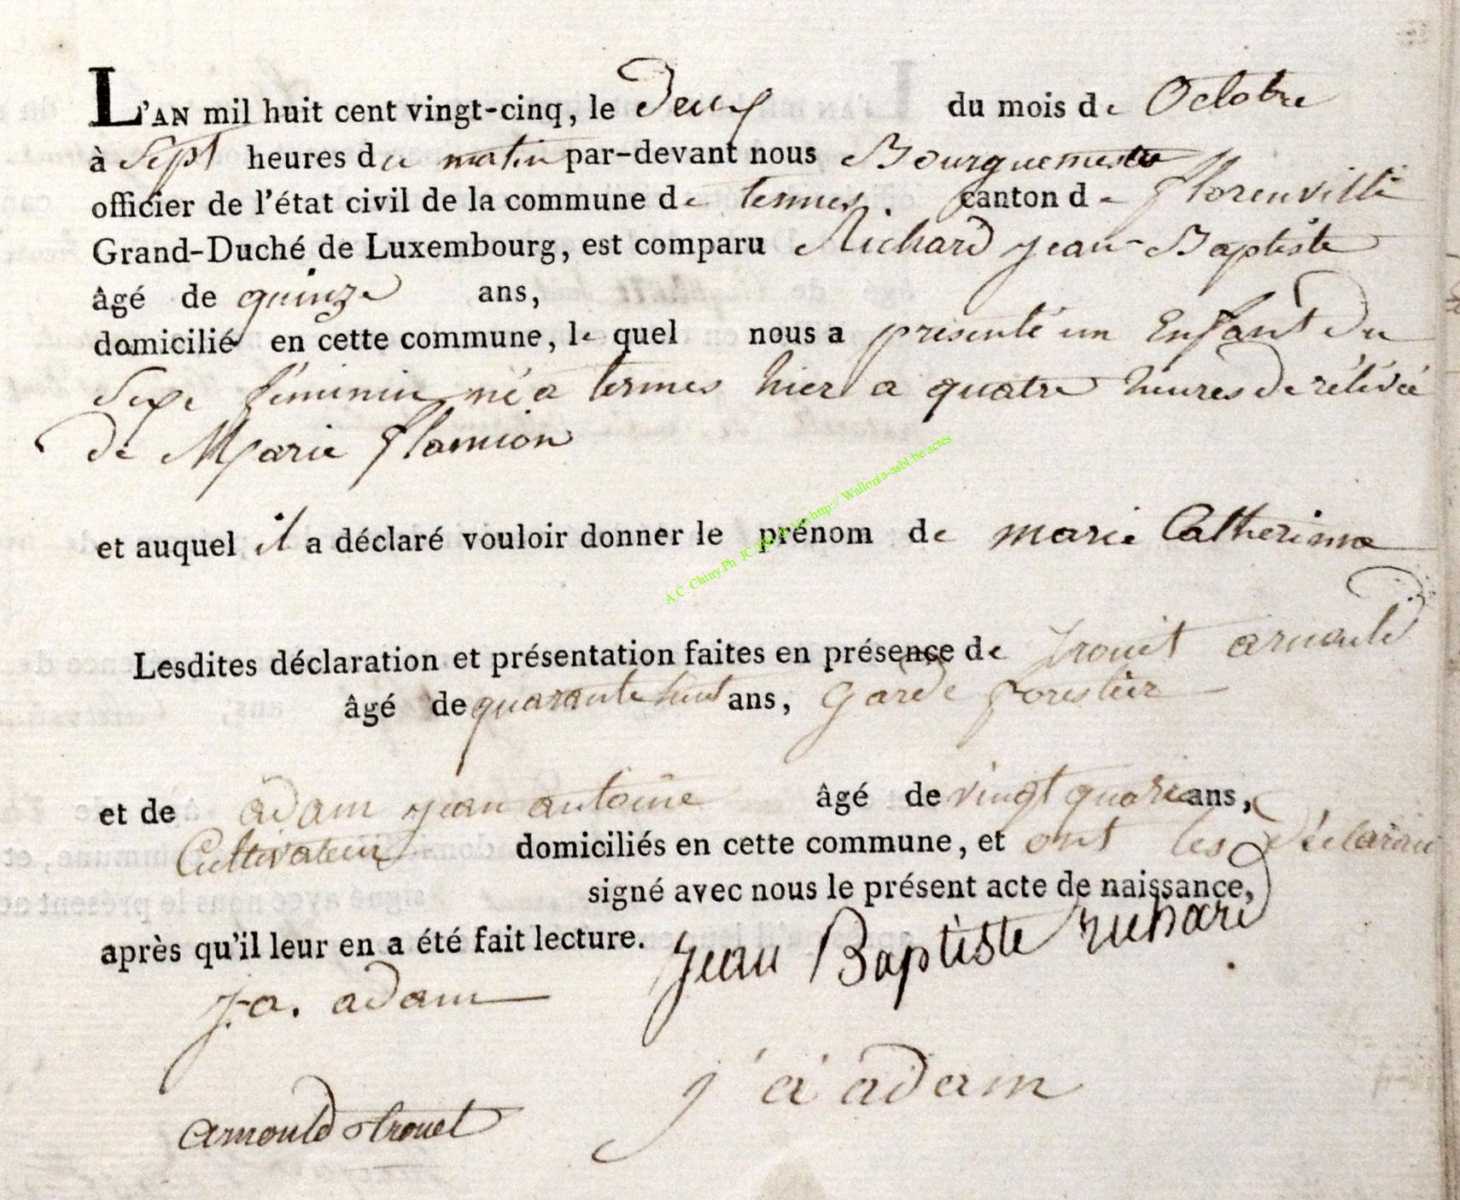 L'AN mil huit cent vingt-cinq, le Deux du mois de Octobre
à Sept heures du matin par-devant nous Bourguemestre
officier de l'état civil de la commune de termes. canton de florenville
Grand-Duché de Luxembourg, est comparu Richard jean-Baptiste
âgé de quinze ans,
domicilié en cette commune, le quel nous a présenté un Enfant du
Sexe féminin né a termes hier a quatre heures de rélévée
de Marie flamion
et auquel il a déclaré vouloir donner le prénom de marie Catherinne
Lesdites déclaration et présentation faites en présence de trouet arnould
âgé de quarante huit ans, garde forestier
et de adam jean antoine âgé de vingt quatre ans,
Cultivateur domiciliés en cette commune, et ont les déclarant
signé avec nous le présent acte de naissance,
après qu'il leur en a été fait lecture. jean Baptiste richard
j.a. adam
j a adam
arnould trouet
A.C Chiny.Ph http://Wallonia-asbl.be.actes